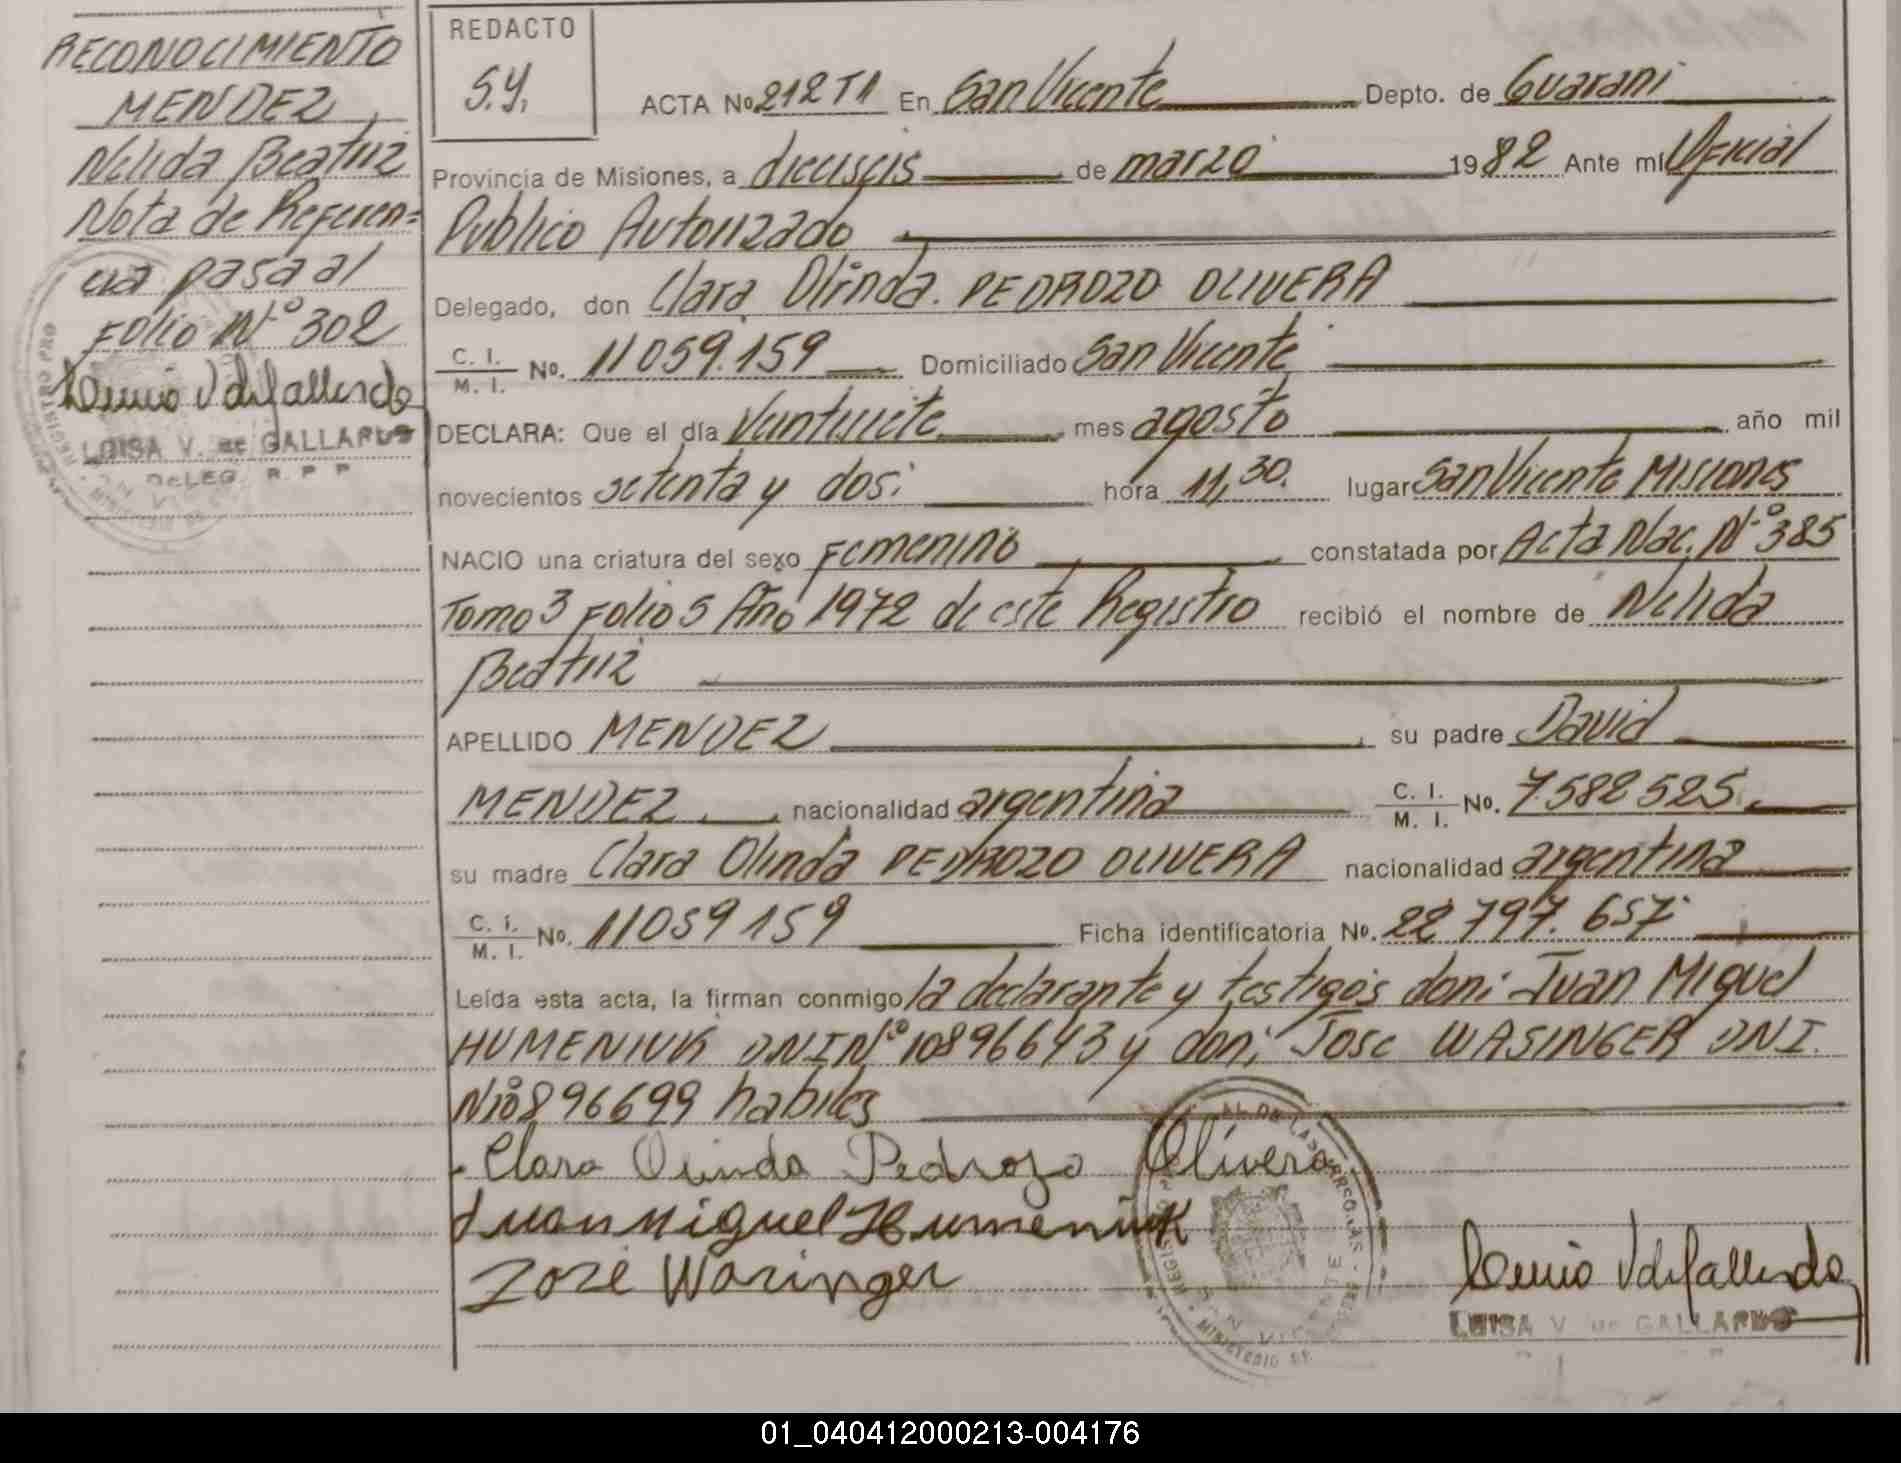 RECONOCIMIENTO
MENDEZ
Nelida Beatriz
Nota de Referen=
cia pasa al
Folio N° 302
LUISA V. de GALLARDO
DELEG. R. P. P.
REDACTO
S.Y.
ACTA No. 212 T1 En San Vicente Depto. de Guarani
Provincia de Misiones, a dieciseis de marzo 1982 Ante mí Oficial
Publico Autorizado
Delegado, don Clara Olinda PEDROZO OLIVERA
C. I. / M. I. No. 11059.159 Domiciliado San Vicente
DECLARA: Que el día Veintisiete mes agosto año mil
novecientos setenta y dos: hora 11,30. lugar San Vicente Misiones
NACIO una criatura del sexo Femenino constatada por Acta Nac. N° 385
Tomo 3 Folio 5 Año 1972 de este Registro recibió el nombre de Nelida
Beatriz
APELLIDO MENDEZ su padre David
MENDEZ nacionalidad argentina C. I. / M. I. No. 7582525
su madre Clara Olinda PEDROZO OLIVERA nacionalidad argentina
C. I. / M. I. No. 11059159 Ficha identificatoria No. 22797.657
Leída esta acta, la firman conmigo la declarante y testigos don: Juan Miguel
HUMENIUK DNI N° 10896643 y don: Jose WASINGER DNI.
N° 10896699 habiles
Clara Olinda Pedrozo Olivera
Juan Miguel Humeniuk
José Wasinger
LUISA V. de GALLARDO
01_040412000213-004176